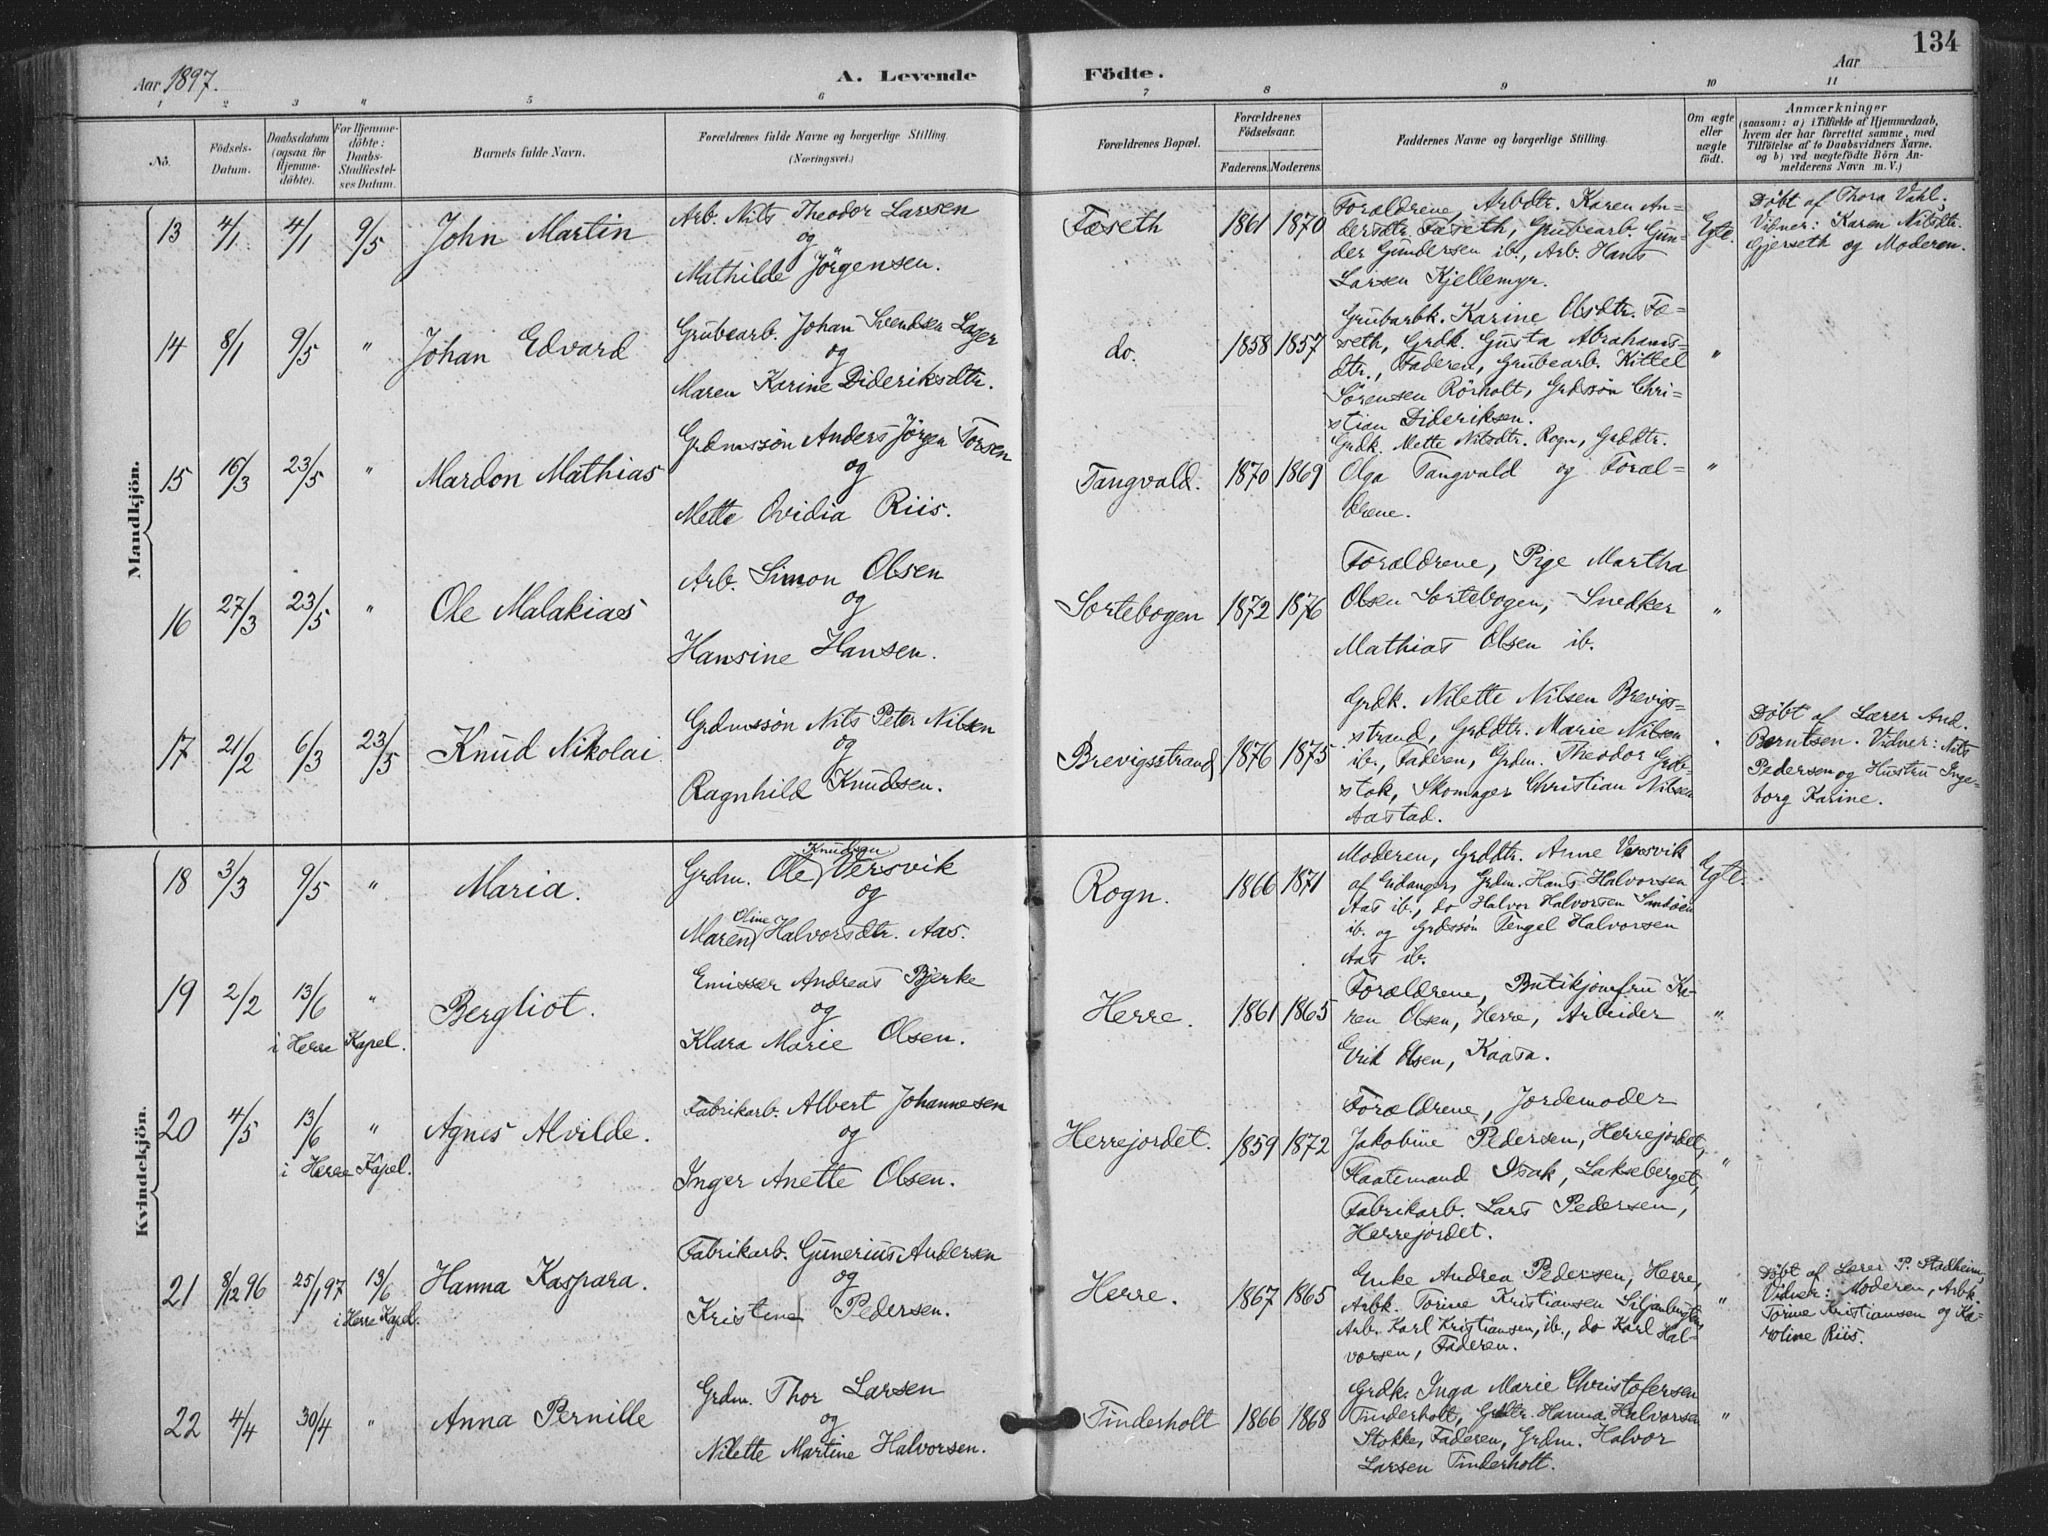 134
Aar 1897.
A. Levende Födte.
Aar
1 2 3 " 5 6 7 8 9 10 11
No.
Födsels-
Datum.
Daabsdatum
(ogsaa for
Hjemme-
döbte).
For Hjemme-
döbte:
Daabs-
Stadfæstel-
ses Datum.
Barnets fulde Navn.
Forældrenes fulde Navne og borgerlige Stilling.
(Næringsvei.)
Forældrenes Bopæl.
Forældrenes
Födselsaar.
Faderens. Moderens.
Faddernes Navne og borgerlige Stilling.
Om ægte
eller
uægte
födt.
Anmærkninger
(saasom: a) i Tilfælde af Hjemmedaab,
hvem der har forrettet samme, med
Tilföielse af to Daabsvidners Navne.
og b) ved uægtefödte Börn An-
melderens Navn m. V.)
Mandkjön.
13 4/1 4/1 9/5 John Martin
Arb. Nils Theodor Larsen
og
Mathilde Jörgensen.
Fæseth 1861 1870
Forældrene, Arbdtr. Karen An-
dersdtr. Fæseth, Grubearb. Gun-
der Gundersen ib., Arb. Hans
Larsen Kjellemyr.
Egte.
Döbt af Thora Vahl.
Vidner: Karen Nilsdtr.
Gjerseth og Moderen.
14 8/1 9/5 " Johan Edvard
Grubearb. Johan Svendsen Lager
og
Maren Karine Dideriksdtr.
do. 1858 1857
Grubarbk. Karine Olsdtr. Fæ-
seth, Grdk. Gusta Abrahams-
dtr., Faderen, Grubearb. Kittel
Sörensen Rörholt, Grdssön Chri-
stian Dideriksen.
"
15 16/3 23/5 " Mardon Mathias
Grdmssön Anders Jörgen Torsen
og
Mette Ovidia Riis.
Tangvald. 1870 1869
Grdk. Mette Nilsdtr. Rogn, Grddtr.
Olga Tangvald og Foræl-
drene.
"
16 27/3 23/5 " Ole Malakias
Arb. Simon Olsen
og
Hansine Hansen.
Sortebogen 1872 1876
Forældrene, Pige Martha
Olsen Sortebogen, Snedker
Mathias Olsen ib.
"
17 21/2 6/3 23/5 Knud Nikolai
Grdmssön Nils Peter Nilsen
og
Ragnhild Knudsen.
Brevigsstrand 1876 1875
Grdk. Nilette Nilsen Brevigs-
strand, Grddtr. Marie Nilsen
ib., Faderen, Grdm. Theodor Grbi-
stok, Skomager Christian Nilsen
Aastad.
"
Döbt af Lærer And.
Berntsen. Vidner: Nils
Pedersen og Hustru Inge-
borg Karine.
Kvindekjön.
18 3/3 9/5 " Maria.
Grdm. Ole Knudsen Versvik
og
Maren Oline Halvorsdtr. Aas.
Rogn. 1866 1871
Moderen, Grddtr. Anne Versvik
af Eidanger, Grdm. Hans Halvorsen
Aas ib., do Halvor Halvorsen Sandöen
ib. og Grdssön Tengel Halvorsen
Aas ib.
Egte.
19 2/2 13/6 " Bergliot.
i Herre Kapel.
Emissær Andreas Bjerke
og
Klara Marie Olsen.
Herre. 1861 1865
Forældrene, Butikjomfru Ka-
ren Olsen, Herre, Arbeider
Erik Olsen, Kaasa.
"
20 4/5 13/6 " Agnes Alvilde.
i Herre Kapel.
Fabrikarb. Albert Johannesen
og
Inger Anette Olsen.
Herrejordet. 1859 1872
Forældrene, Jordemoder
Jakobine Pedersen, Herrejordet,
Flaatemand Isak, Lakseberget,
Fabrikarb. Lars Pedersen,
Herrejordet.
"
21 8/12 96 25/1 97 13/6 Hanna Kaspara.
i Herre Kapel.
Fabrikarb. Gunerius Andersen
og
Kristine Pedersen.
Herre. 1867 1865
Enke Andrea Pedersen, Herre,
Arbk. Torine Kristiansen
Arb. Karl Kristiansen, ib., do Karl Hal-
vorsen, Faderen.
"
Döbt af Lærer P. Stadheim,
Vidner: Moderen, Arbk.
Torine Kristiansen og Ka-
roline Riis.
22 4/4 30/4 " Anna Pernille
Grdm. Thor Larsen
og
Nilette Martine Halvorsen.
Tinderholt 1866 1868
Grdk. Inga Marie Christofersen
Tinderholt, Grdtr. Hanna Halvorsen
Stokke, Faderen, Grdm. Halvor
Larsen Tinderholt.
"